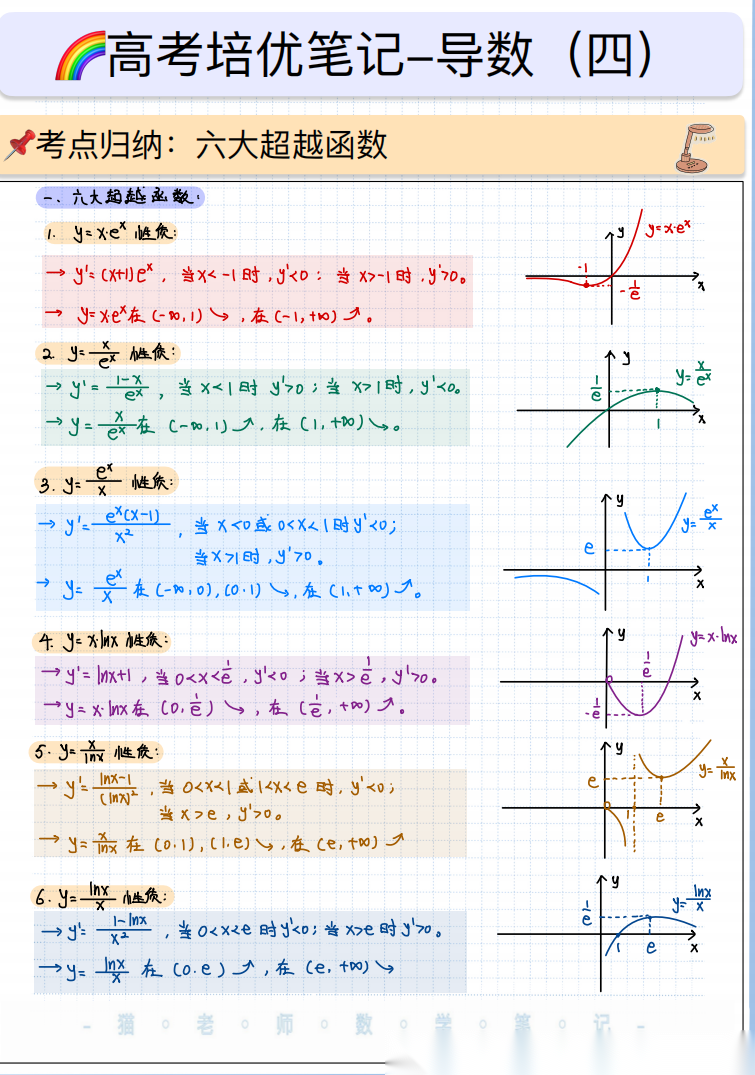 高考培优笔记–导数（四）
考点归纳：六大超越函数
一、六大超越函数：
1. y=x·eˣ 性质：
→ y'=(x+1)eˣ，当x<-1时,y'<0；当x>-1时,y'>0。
→ y=x·eˣ在(-∞,1)↘,在(-1,+∞)↗。
y
y=x·eˣ
-1
-1/e
x
2. y=x/eˣ 性质：
→ y'=(1-x)/eˣ，当x<1时y'>0；当x>1时,y'<0。
→ y=x/eˣ在(-∞,1)↗,在(1,+∞)↘。
y
y=x/eˣ
1/e
1
x
3. y=eˣ/x 性质：
→ y'=eˣ(x-1)/x²，当x<0或0<x<1时y'<0；
当x>1时,y'>0。
→ y=eˣ/x在(-∞,0),(0·1)↘,在(1,+∞)↗。
y
y=eˣ/x
e
1
x
4. y=x·lnx 性质：
→ y'=lnx+1，当0<x<1/e,y'<0；当x>1/e,y'>0。
→ y=x·lnx在(0,1/e)↘,在(1/e,+∞)↗。
y
y=x·lnx
1/e
-1/e
x
5. y=x/lnx 性质：
→ y'=(lnx-1)/(lnx)²，当0<x<1或1<x<e时,y'<0；
当x>e,y'>0。
→ y=x/lnx在(0·1),(1,e)↘,在(e,+∞)↗
y
y=x/lnx
e
1
e
x
6. y=lnx/x 性质：
→ y'=(1-lnx)/x²，当0<x<e时y'<0；当x>e时y'>0。
→ y=lnx/x在(0·e)↗,在(e,+∞)↘
y
y=lnx/x
1/e
1
e
x
- 猫 ○ 老 ○ 师 ○ 数 ○ 学 ○ 笔 ○ 记 -